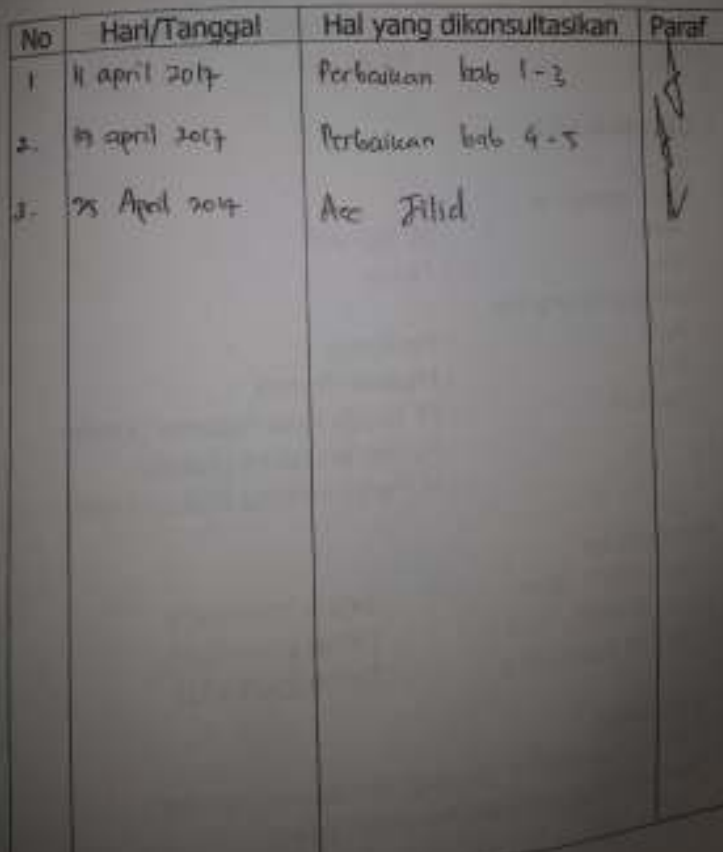 No Hari/Tanggal Hal yang dikonsultasikan Paraf
1 11 april 2017 Perbaikan bab 1-3
2. 19 april 2017 Perbaikan bab 4-5
3. 25 April 2017 Acc Jilid